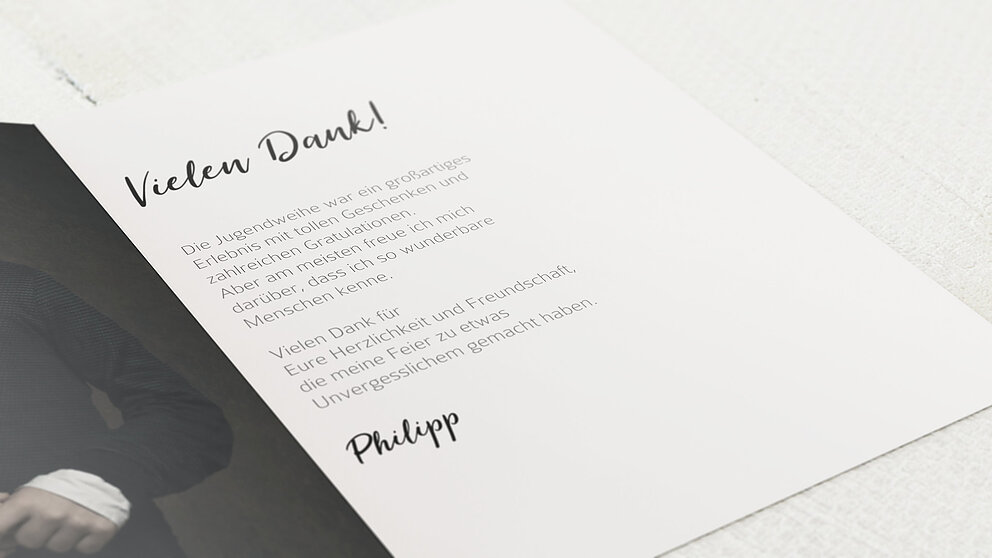 Vielen Dank!
Die Jugendweihe war ein großartiges
Erlebnis mit tollen Geschenken und
zahlreichen Gratulationen.
Aber am meisten freue ich mich
darüber, dass ich so wunderbare
Menschen kenne.
Vielen Dank für
Eure Herzlichkeit und Freundschaft,
die meine Feier zu etwas
Unvergesslichem gemacht haben.
Philipp